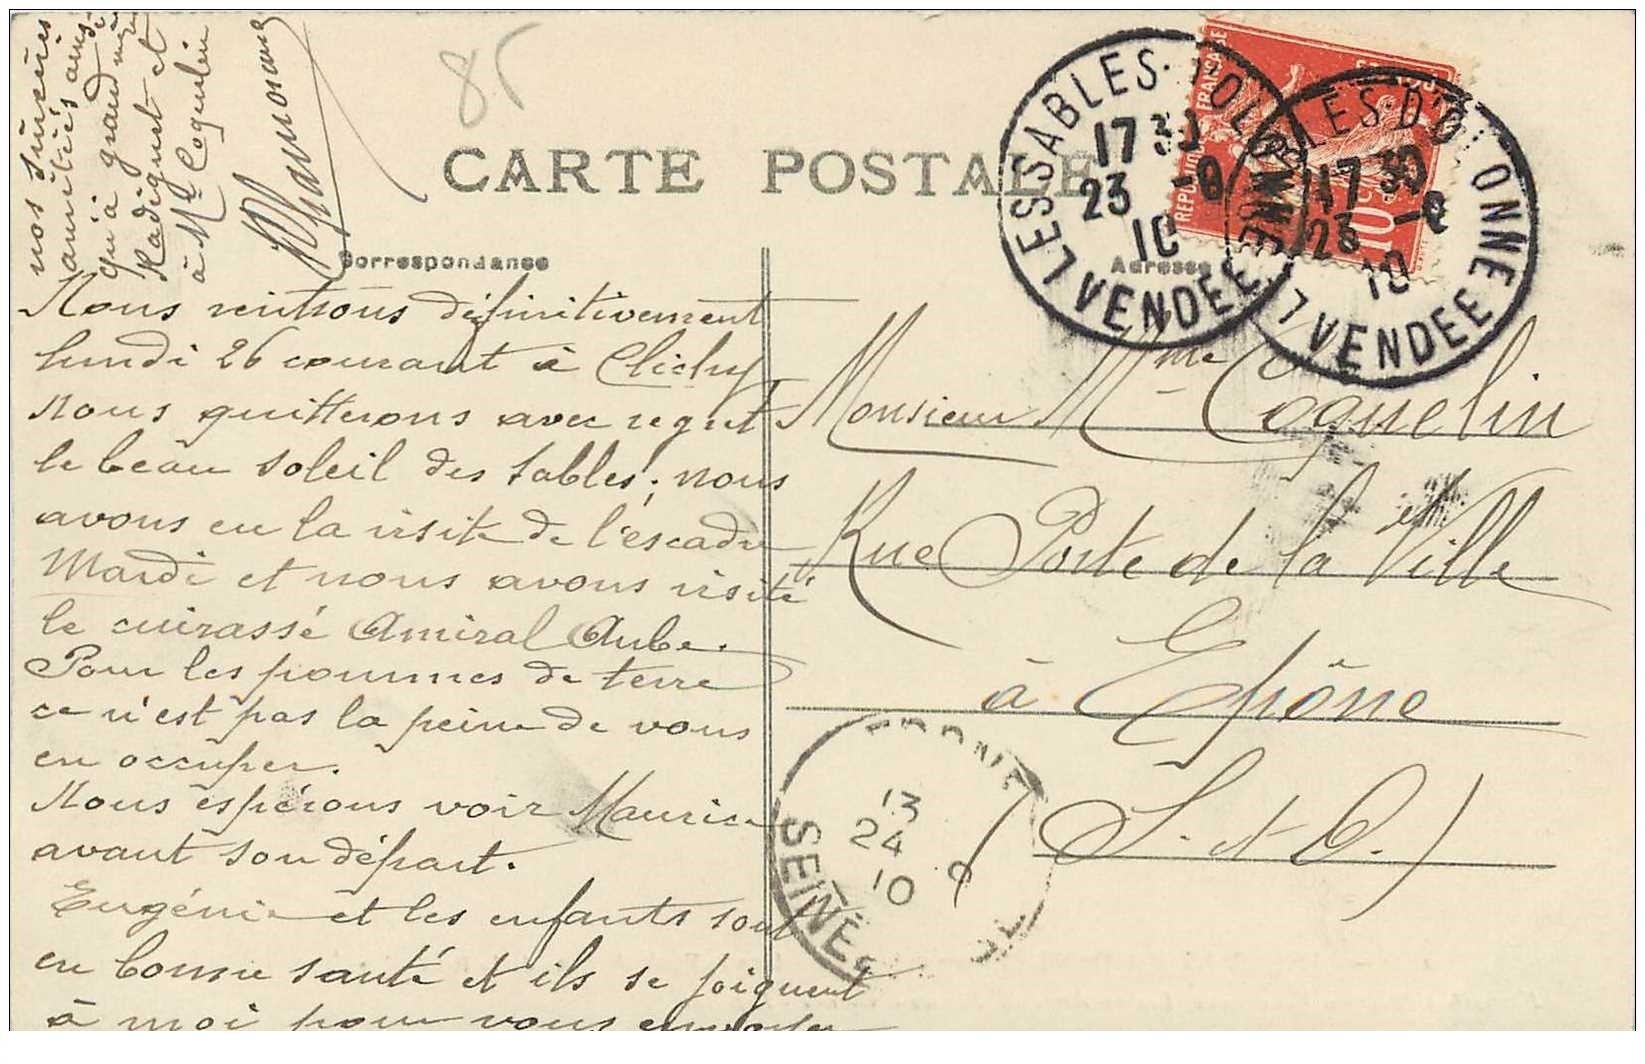 85
CARTE POSTALE
Correspondance
Adresse
LES SABLES-D'OLONNE
17 30
23 -9
10
VENDEE
LES-D'OLONNE
17 30
23 -9
10
VENDEE
REPUBLIQUE FRANCAISE
10c
Nous rentrons définitivement
lundi 26 courant à Clichy
nous quitterons avec regret
le beau soleil des sables; nous
avons eu la visite de l'escadre
Mardi et nous avons visité
le cuirassé Amiral Aube.
Pour les pommes de terre
ce n'est pas la peine de vous
en occuper.
Nous espérons voir Maurice
avant son départ.
Eugénie et les enfants sont
en bonne santé et ils se joignent
à moi pour vous envoyer
nos sincères
amitiés ainsi
qu'à grand mère
Radiguet et
à Mr Coquelin
Monsieur Mme Coquelin
Rue Porte de la Ville
à Epône
S. et O.)
EPONE
13
24 9
10
SEINE